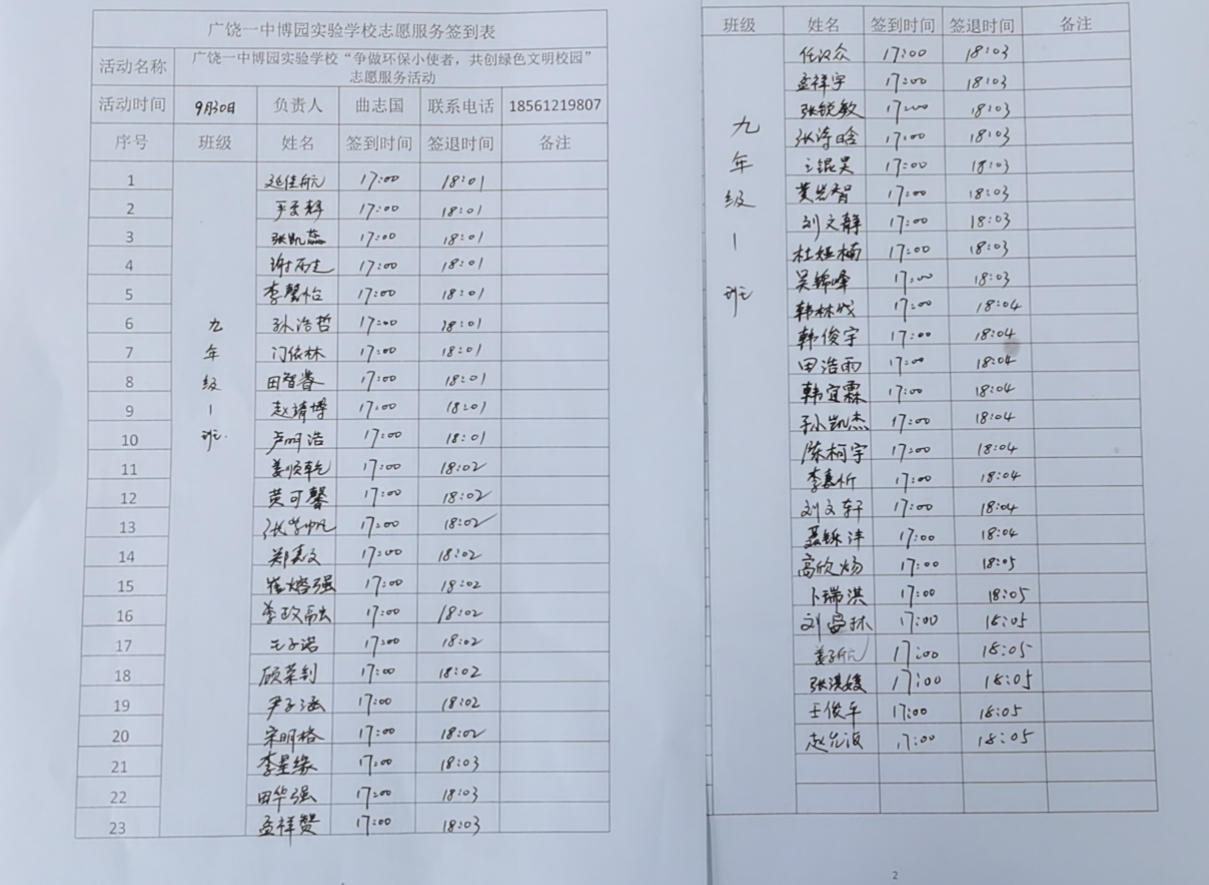 广饶一中博园实验学校志愿服务签到表
活动名称 广饶一中博园实验学校“争做环保小使者，共创绿色文明校园”
志愿服务活动
活动时间 9月30日 负责人 曲志国 联系电话 18561219807
序号 班级 姓名 签到时间 签退时间 备注
九年级1班.
1 延佳航 17:00 18:01
2 17:00 18:01
3 张凯蕊 17:00 18:01
4 17:00 18:01
5 李馨怡 17:00 18:01
6 孙浩哲 17:00 18:01
7 门依林 17:00 18:01
8 田智睿 17:00 18:01
9 赵靖博 17:00 18:01
10 17:00 18:01
11 姜顺乾 17:00 18:02
12 黄可馨 17:00 18:02
13 张学帆 17:00 18:02
14 郑嘉文 17:00 18:02
15 崔熔强 17:00 18:02
16 李政融 17:00 18:02
17 王子诺 17:00 18:02
18 17:00 18:02
19 尹子涵 17:00 18:02
20 宋明格 17:00 18:02
21 李星缘 17:00 18:03
22 田华强 17:00 18:03
23 孟祥赞 17:00 18:03
班级 姓名 签到时间 签退时间 备注
九年级1班
任汉众 17:00 18:03
孟祥宇 17:00 18:03
张锐敏 17:00 18:03
张诗晗 17:00 18:03
王锟昊 17:00 18:03
黄岩智 17:00 18:03
刘文静 17:00 18:03
杜姬楠 17:00 18:03
吴锦峰 17:00 18:03
韩林成 17:00 18:04
韩俊宇 17:00 18:04
田浩雨 17:00 18:04
韩宜霖 17:00 18:04
孙凯杰 17:00 18:04
陈柯宇 17:00 18:04
李嘉忻 17:00 18:04
刘文轩 17:00 18:04
聂铄沣 17:00 18:04
高欣炀 17:00 18:05
卜瑞淇 17:00 18:05
17:00 18:05
姜子航 17:00 18:05
张淇媛 17:00 18:05
王俊午 17:00 18:05
赵允浪 17:00 18:05
2